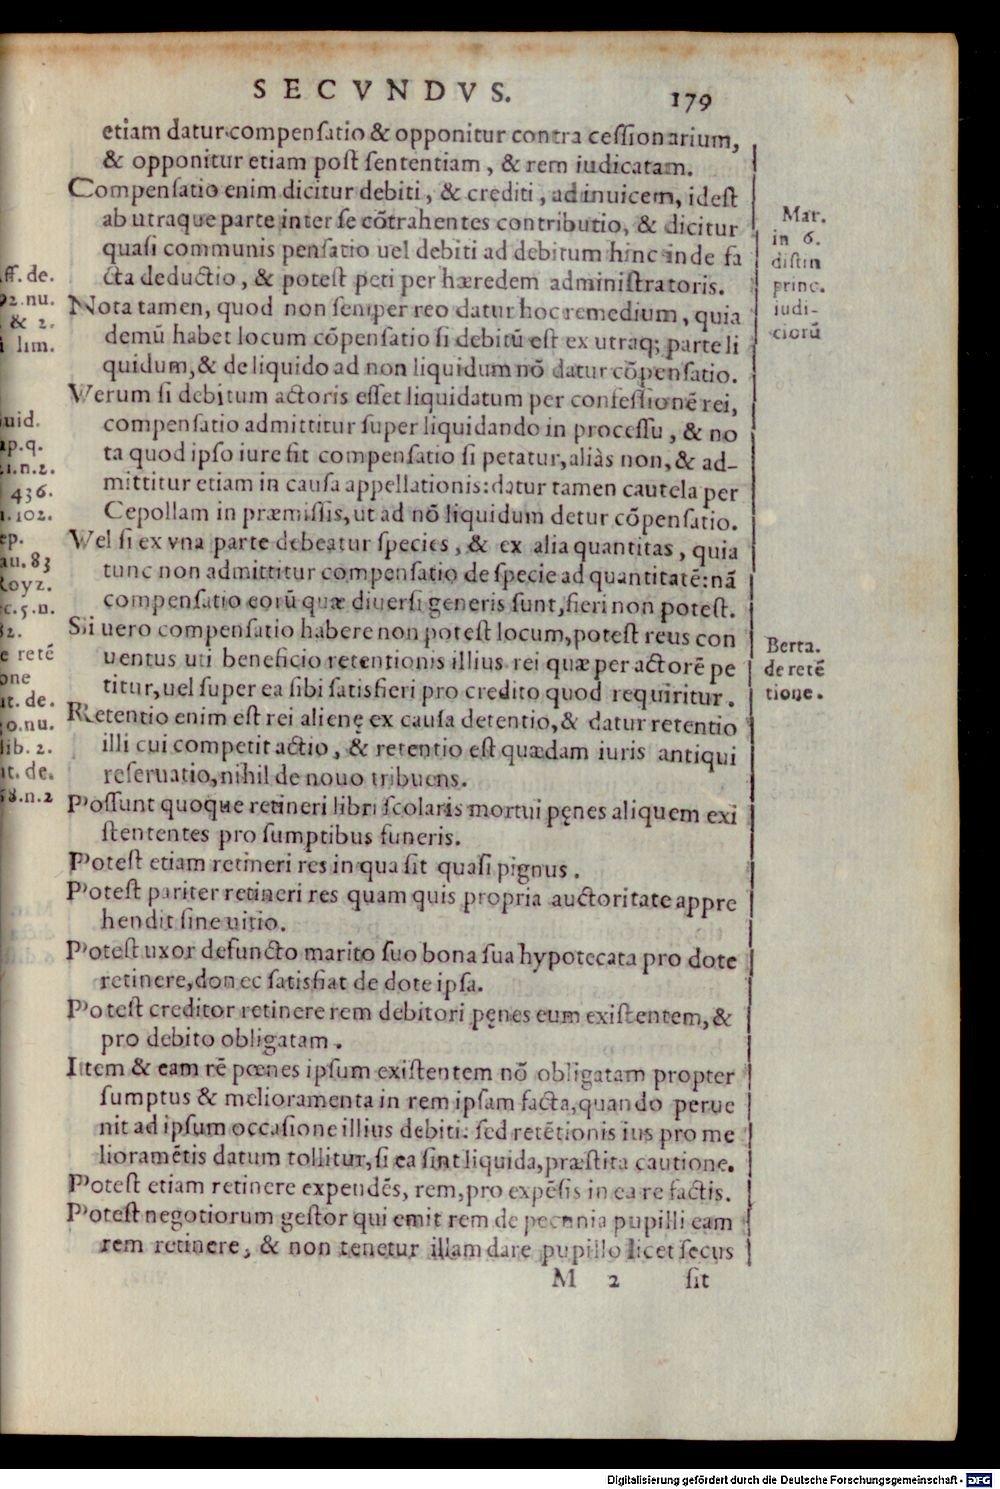 SECVNDVS. 179
etiam datur compensatio & opponitur contra cessionarium,
& opponitur etiam post sententiam, & rem iudicatam.
Compensatio enim dicitur debiti, & crediti, ad inuicem, idest
ab utraque parte inter se cõtrahentes contributio, & dicitur
quasi communis pensatio uel debiti ad debitum hinc inde fa
cta deductio, & potest peti per hæredem administratoris.
Nota tamen, quod non semper reo datur hoc remedium, quia
demũ habet locum cõpensatio si debitũ est ex utraq; parte li
quidum, & de liquido ad non liquidum nõ datur cõpensatio.
Verum si debitum actoris esset liquidatum per confessionẽ rei,
compensatio admittitur super liquidando in processu, & no
ta quod ipso iure fit compensatio si petatur, aliàs non, & ad-
mittitur etiam in causa appellationis: datur tamen cautela per
Cepollam in præmissis, ut ad nõ liquidum detur cõpensatio.
Vel si ex vna parte debeatur species, & ex alia quantitas, quia
tunc non admittitur compensatio de specie ad quantitatẽ: nã
compensatio eorũ quæ diuersi generis sunt, fieri non potest.
Si uero compensatio habere non potest locum, potest reus con
uentus uti beneficio retentionis illius rei quæ per actorẽ pe
titur, uel super ea sibi satisfieri pro credito quod requiritur.
Retentio enim est rei alienę ex causa detentio, & datur retentio
illi cui competit actio, & retentio est quædam iuris antiqui
reseruatio, nihil de nouo tribuens.
Possunt quoque retineri libri scolaris mortui pęnes aliquem exi
stententes pro sumptibus funeris.
Potest etiam retineri res in qua sit quasi pignus.
Potest pariter retineri res quam quis propria auctoritate appre
hendit sine uitio.
Potest uxor defuncto marito suo bona sua hypotecata pro dote
retinere, donec satisfiat de dote ipsa.
Potest creditor retinere rem debitori pęnes eum existentem, &
pro debito obligatam.
Item & eam rẽ pœnes ipsum existentem nõ obligatam propter
sumptus & melioramenta in rem ipsam facta, quando perue
nit ad ipsum occasione illius debiti: sed retẽtionis ius pro me
lioramẽtis datum tollitur, si ea sint liquida, præstita cautione.
Potest etiam retinere expendẽs, rem, pro expẽsis in ea re factis.
Potest negotiorum gestor qui emit rem de pecunia pupilli eam
rem retinere, & non tenetur illam dare pupillo licet secus
M 2 sit
Mar.
in 6.
distin
princ.
iudi-
ciorũ
Berta.
de retẽ
tione.
ff. de.
92.nu.
& 2.
lim.
uid.
ap.q.
21.n.2.
436.
102.
ep.
au.83
Royz.
c.5.n.
82.
e retẽ
one
it. de.
o.nu.
lib. 2.
it. de.
58.n.2
Digitalisierung gefördert durch die Deutsche Forschungsgemeinschaft - DFG